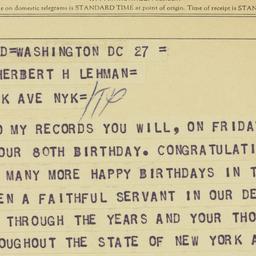 me on domestic telegrams is STANDARD TIME at point of origin. Time of receipt is STAN
D=WASHINGTON DC 27 =
HERBERT H LEHMAN=
K AVE NYK=
O MY RECORDS YOU WILL, ON FRIDAY
OUR 80TH BIRTHDAY. CONGRATULATI
MANY MORE HAPPY BIRTHDAYS IN T
EN A FAITHFUL SERVANT IN OUR DE
THROUGH THE YEARS AND YOUR THO
OUGHOUT THE STATE OF NEW YORK A